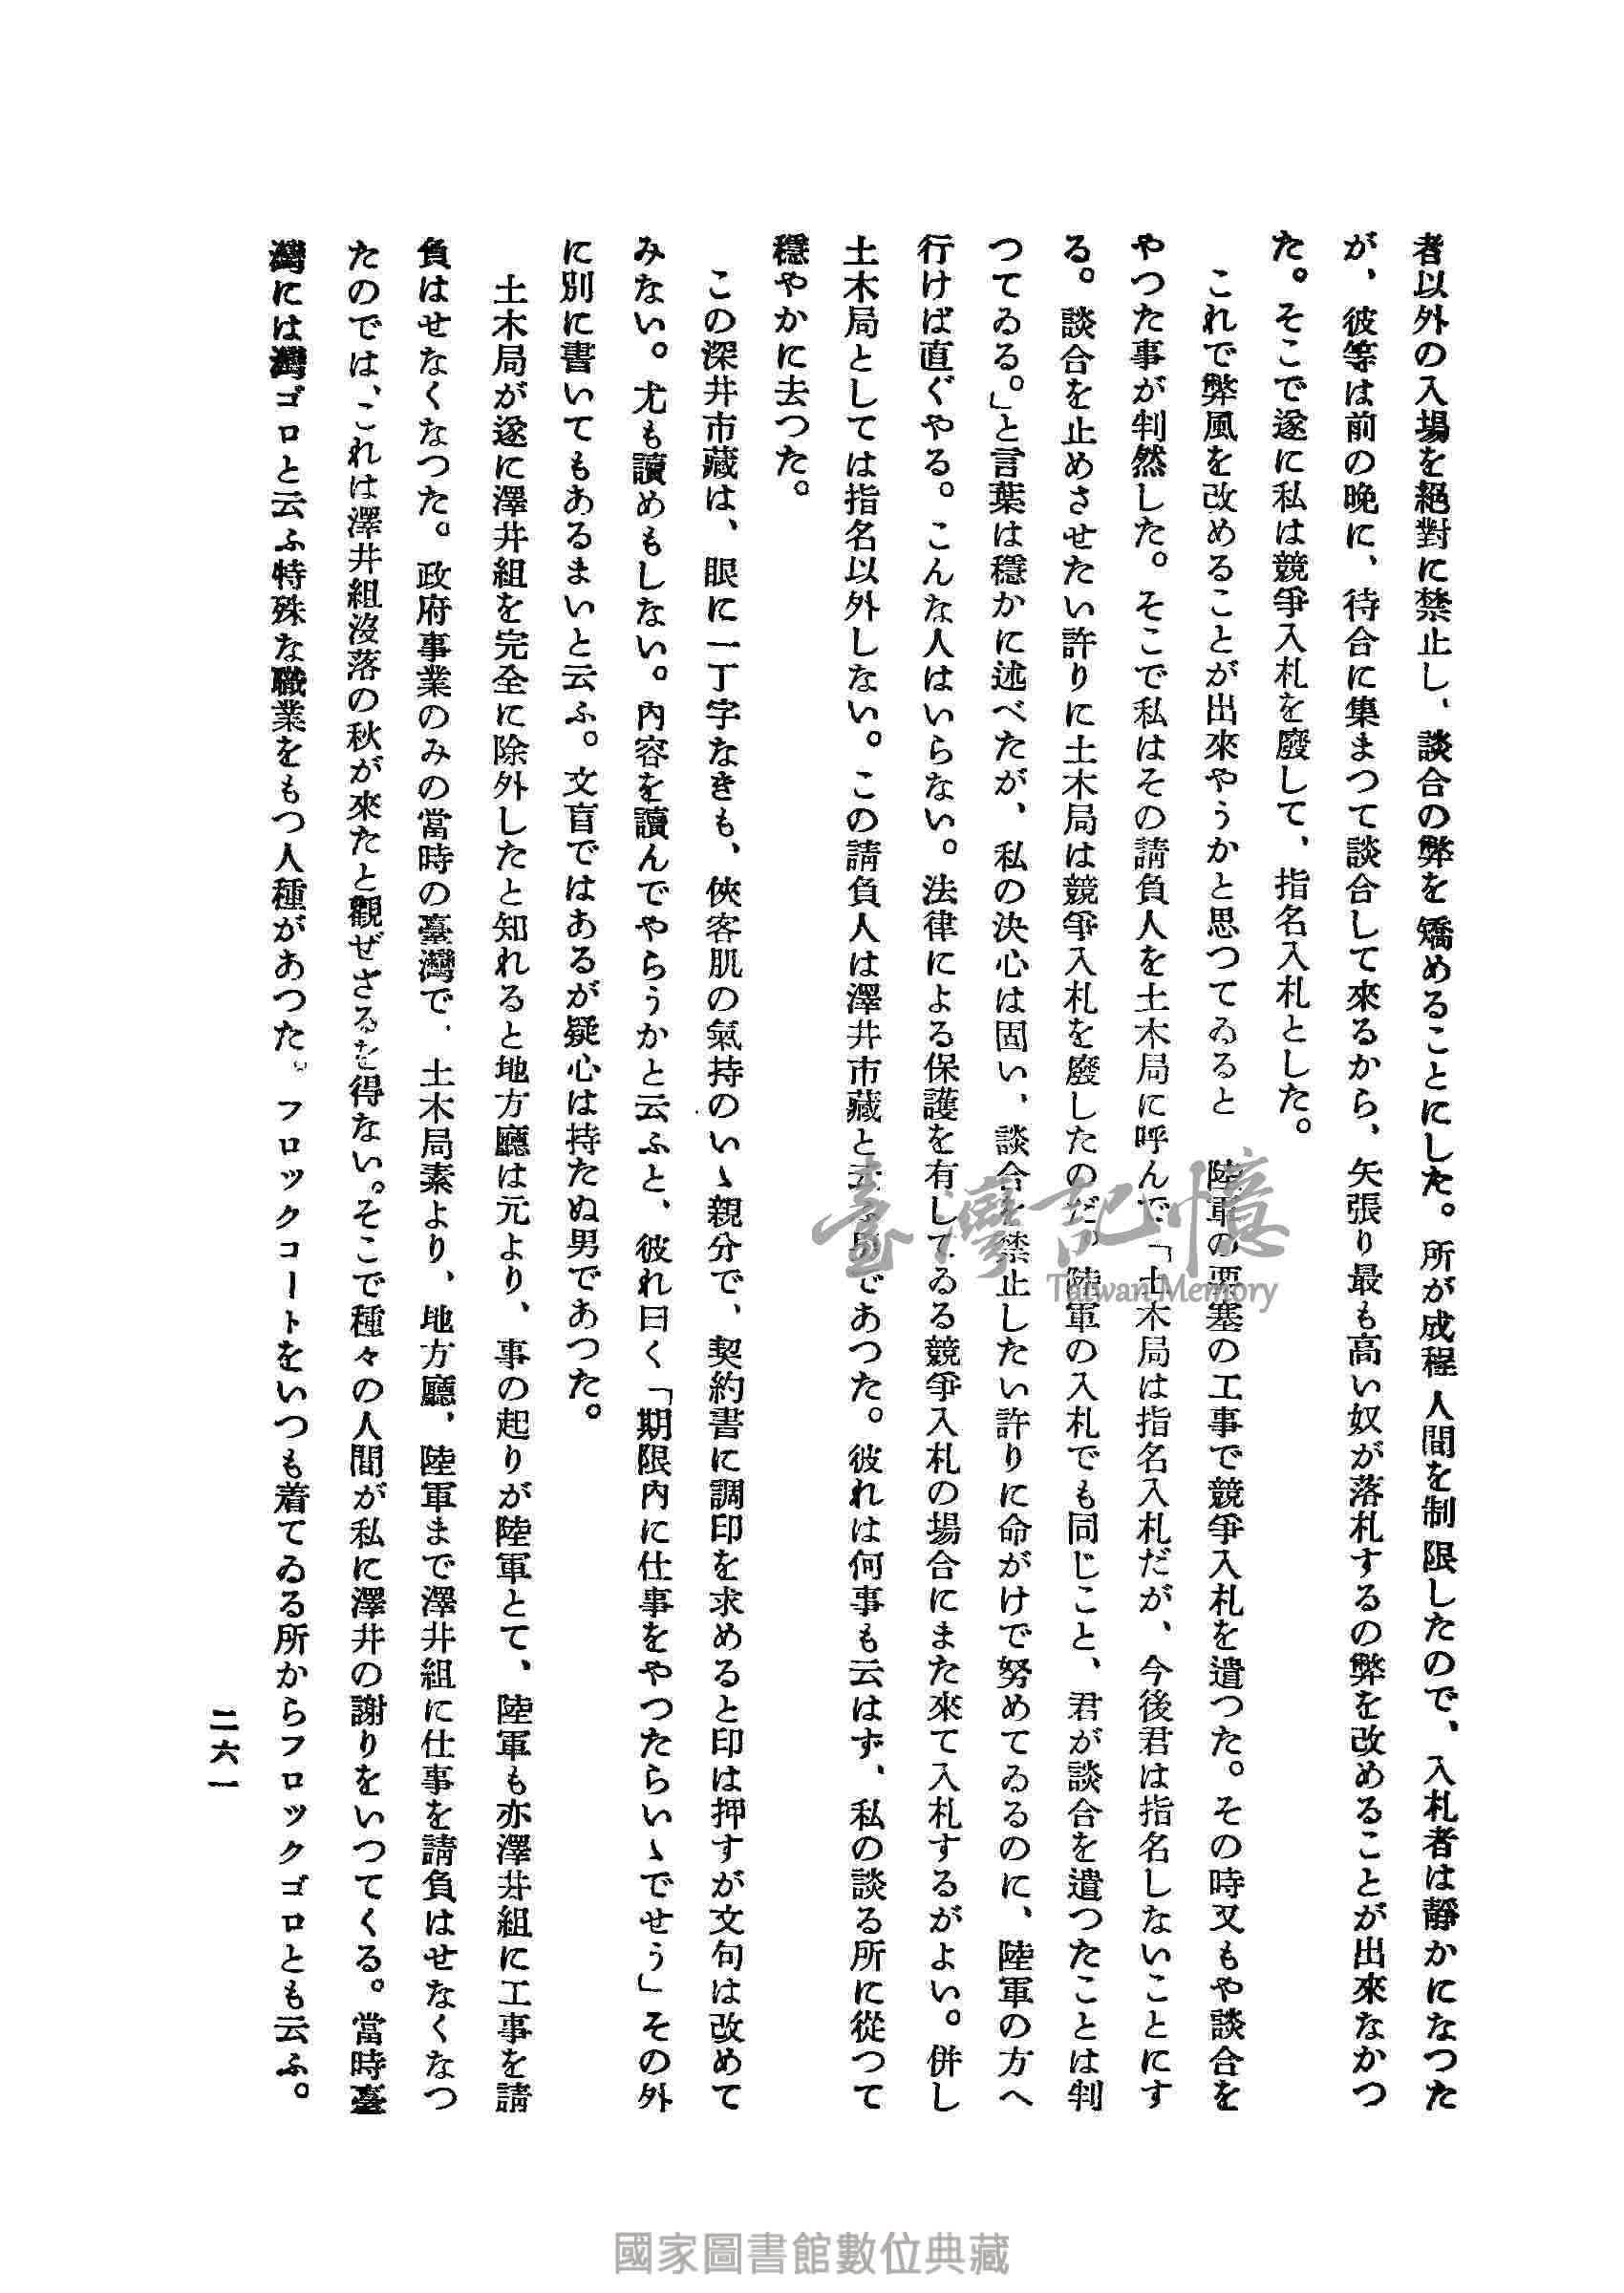 者以外の入場を絕對に禁止し、談合の弊を矯めることにした。所が成程人間を制限したので、入札者は靜かになつた
が、彼等は前の晩に、待合に集まつて談合して來るから、矢張り最も高い奴が落札するの弊を改めることが出來なかつ
た。そこで遂に私は競爭入札を廢して、指名入札とした。
これで弊風を改めることが出來やうかと思つてゐると　陸軍の要塞の工事で競爭入札を遣つた。その時又もや談合を
やつた事が判然した。そこで私はその請負人を土木局に呼んで「土木局は指名入札だが、今後君は指名しないことにす
る。談合を止めさせたい許りに土木局は競爭入札を廢したのだ。陸軍の入札でも同じこと、君が談合を遣つたことは判
つてゐる。」と言葉は穩かに述べたが、私の決心は固い、談合を禁止したい許りに命がけで努めてゐるのに、陸軍の方へ
行けば直ぐやる。こんな人はいらない。法律による保護を有してゐる競爭入札の場合にまた來て入札するがよい。併し
土木局としては指名以外しない。この請負人は澤井市藏と云ふ男であつた。彼れは何事も云はず、私の談る所に從つて
穩やかに去つた。
この深井市藏は、眼に一丁字なきも、俠客肌の氣持のいゝ親分で、契約書に調印を求めると印は押すが文句は改めて
みない。尤も讀めもしない。內容を讀んでやらうかと云ふと、彼れ曰く「期限內に仕事をやつたらいゝでせう」その外
に別に書いてもあるまいと云ふ。文盲ではあるが疑心は持たぬ男であつた。
土木局が遂に澤井組を完全に除外したと知れると地方廳は元より、事の起りが陸軍とて、陸軍も亦澤井組に工事を請
負はせなくなつた。政府事業のみの當時の臺灣で、土木局素より、地方廳、陸軍まで澤井組に仕事を請負はせなくなつ
たのでは、これは澤井組沒落の秋が來たと觀ぜざるを得ない。そこで種々の人間が私に澤井の謝りをいつてくる。當時臺
灣には灣ゴロと云ふ特殊な職業をもつ人種があつた。フロックコートをいつも着てゐる所からフロックゴロとも云ふ。
二六一
臺灣記憶
Taiwan Memory
國家圖書館數位典藏